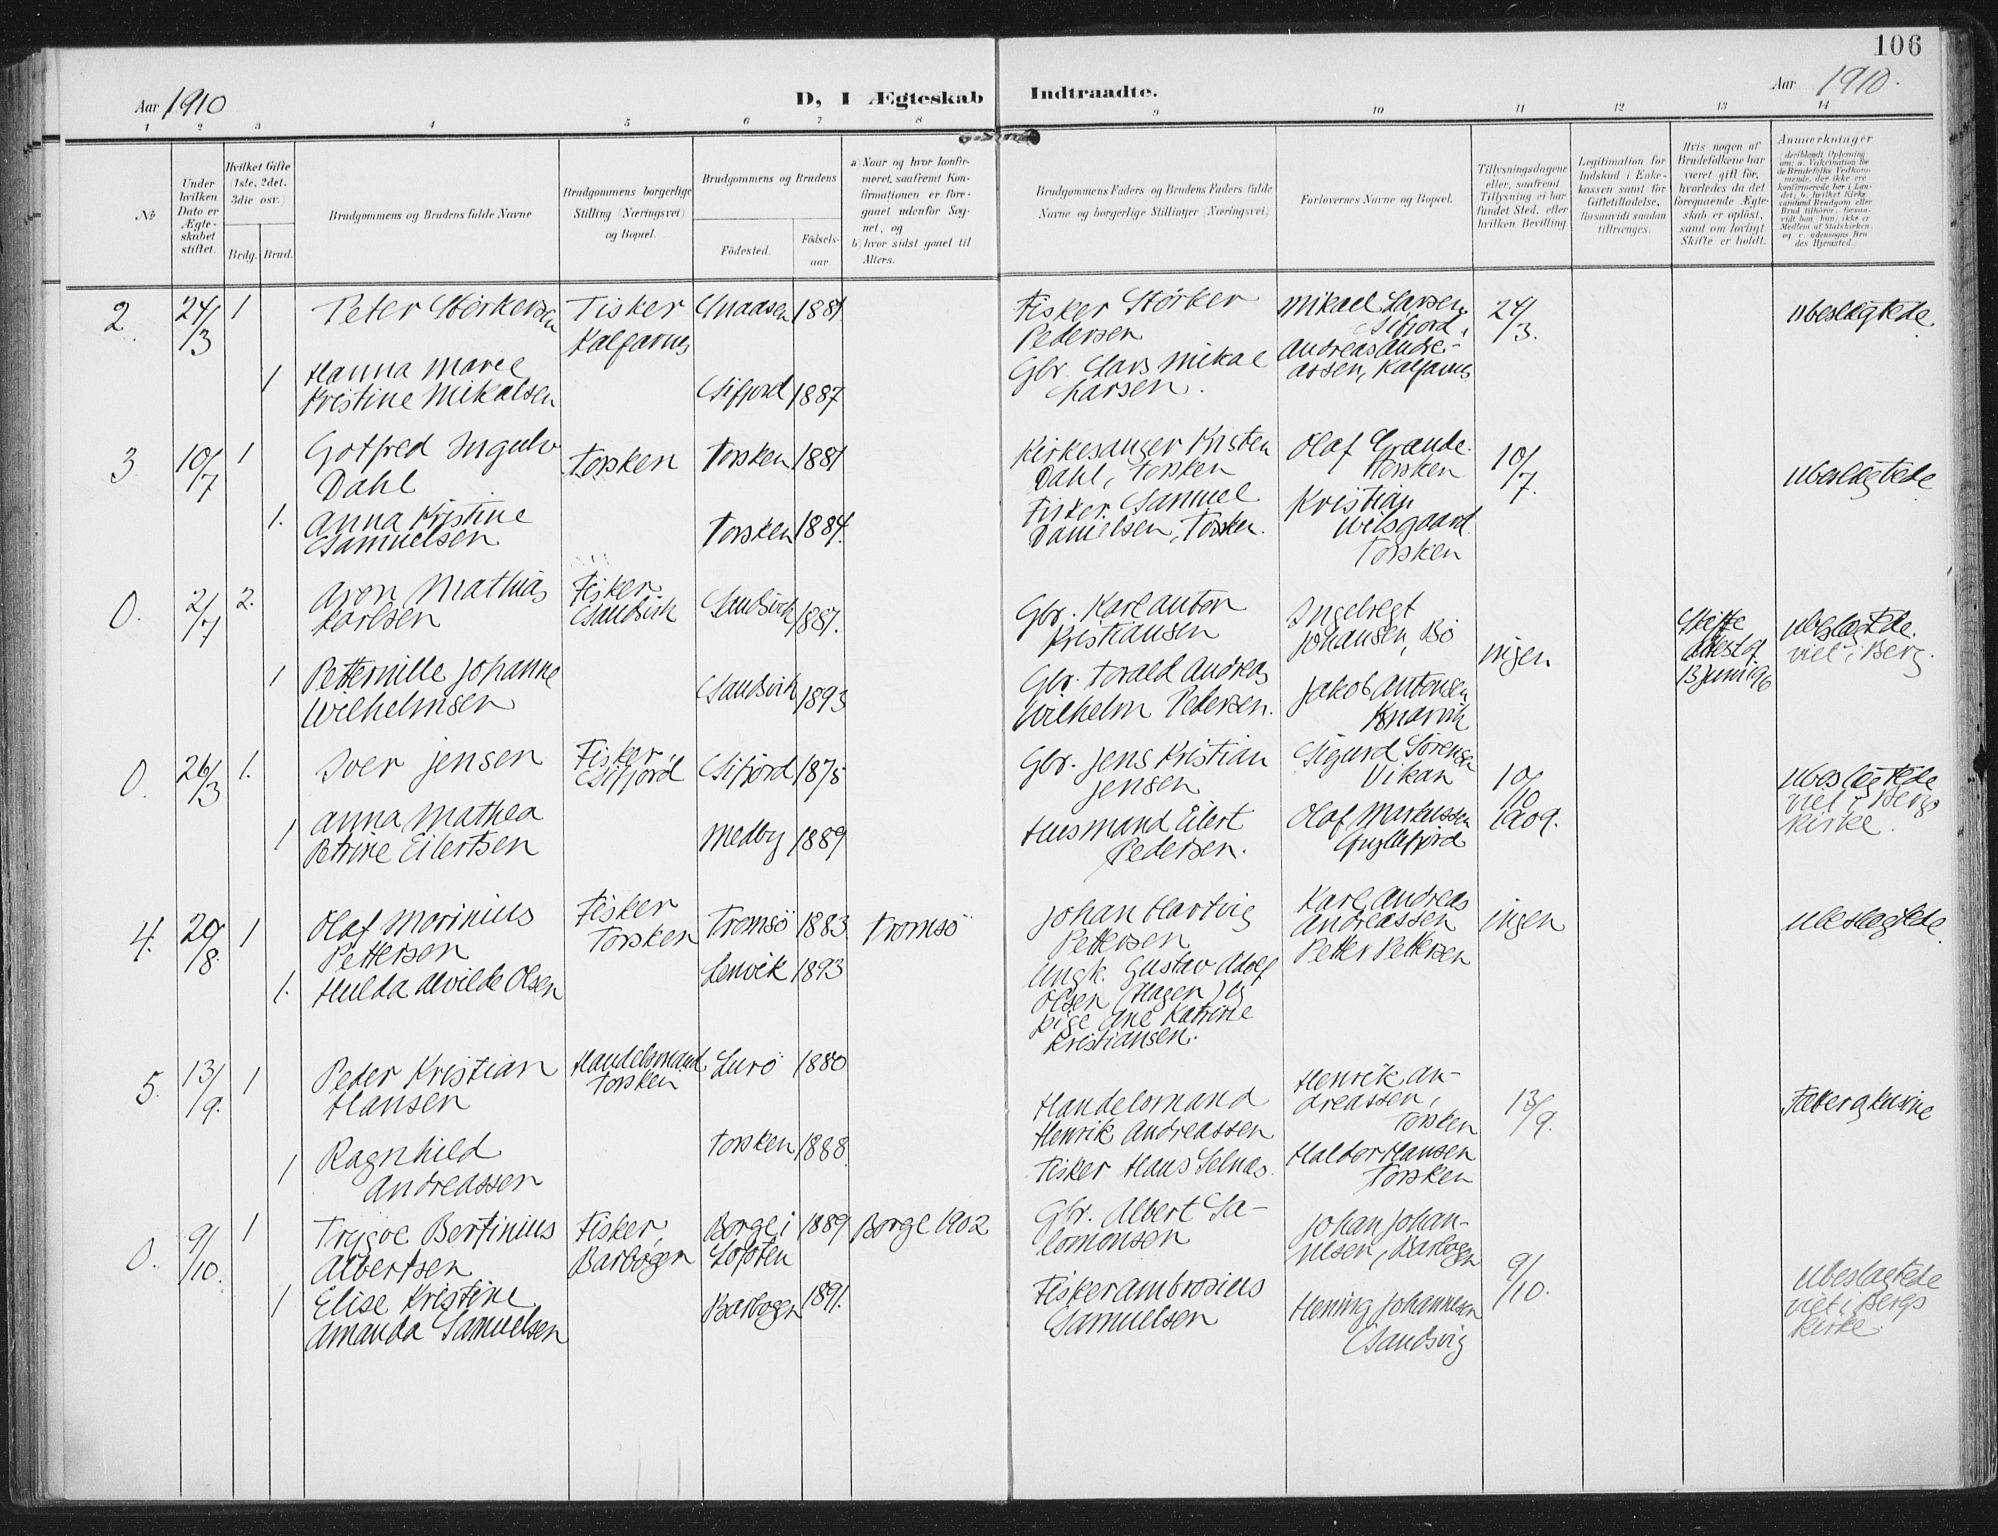 106
Aar 1910
D, I Ægteskab Indtraadte.
Aar 1910.
1 2 3 4 5 6 7 8 9 10 11 12 13 14
No
Under hvilken Dato er Ægteskabet stiftet.
Hvilket Gifte (1ste, 2det, 3die osv.)
Brdg. Brud.
Brudgommens og Brudens fulde Navne
Brudgommens borgerlige Stilling (Næringsvei) og Bopæl.
Brudgommens og Brudens
Födested.
Födselsaar.
a) Naar og hvor konfirmeret, saafremt Konfirmationen er foregaaet udenfor Sognet, og
b) hvor sidst gaaet til Alters.
Brudgommens Faders og Brudens Faders fulde Navne og borgerlige Stillinger (Næringsvei)
Forlovernes Navne og Bopæl.
Tillysningsdagene eller, saafremt Tillysning ei har fundet Sted, efter hvilken Bevilling
Legitimation for Indskud i Enkekassen samt for Giftetilladelse, forsaavidt saadan tiltrænges.
Hvis nogen af Brudefolkene har været gift før, hvorledes da det foregaaende Ægteskab er oplöst, samt om lovligt Skifte er holdt.
Anmærkninger
2. 24/3 1 Peter Størkersen Fisker Kalfarnes 1881
Fisker Størker Pedersen
Mikael Larsen, Sifjord,
24/3. ubeslegtede
1 Hanna Marie Kristine Mikalsen Sifjord 1887
Gbr. Lars Mikal Larsen.
Andreas Andreassen, Kalfarnes
3. 10/7 1 Gotfred Ingulv Dahl Torsken Torsken 1881
Kirkesanger Kristen Dahl, Torsken
Olaf Grande Torsken
10/7. ubeslegtede
1. Anna Kristine Samuelsen Torsken 1884.
Fisker Samuel Danielsen, Torsken.
Kristian Wilsgaard Torsken
0. 2/7 2. Aron Mathias Karlsen Fisker Sandvik Sandvik 1881.
Gbr. Karl Anton Kristiansen
Ingebregt Johansen, Bö
ingen
Skifte
13 juni
ubeslegtede. viet i Berg.
1 Petternille Johanne Wilhelmsen Sandvik 1893
Gbr. Torald Andreas Wilhelm Pedersen.
Jakob Antonsen Knarvik
0. 26/3 1. Iver Jensen Fisker Sifjord Sifjord 1875
Gbr. Jens Kristian Jensen
Sigurd Sörensen Vikan
10/10 1909.
ubeslegtede viet i Bergs kirke.
1 Anna Mathea Petrine Eilertsen Medby 1889
Husmand Eilert Pedersen.
Olaf Markussen Gryllefjord
4. 20/8. 1 Olaf Marinius Pettersen Fisker Torsken Tromsö 1883 Tromsö
Johan Hartvig Pettersen
Karl Andreas Andreassen
ingen ubeslegtede.
1. Hulda Alvilde Olsen Lenvik 1893
Ungk. Gustav Adolf Olsen (Hagen) og pige Ane Katrine Kristiansen.
Petter Pettersen
5. 13/9. 1 Peder Kristian Hansen Handelsmand Torsken Lurö 1880
Handelsmand Henrik Andreassen
Henrik Andreassen, Torsken
13/9.
1 Ragnhild Andreassen Torsken 1888.
Fisker Hans Selnæs.
Haldor Hansen Torsken
0. 9/10. 1 Trygve Bertinius Albertsen Fisker, Barbogen Borge i Lofoten 1889 Borge 1902
Gbr. Albert Salomonsen
Johan Johannesen, Barbogen
9/10.
ubeslegtede viet i Bergs kirke.
1 Elise Kristine Amanda Samuelsen Barbogen 1891.
Fisker Ambrosius Samuelsen
Hening Johannesen Sandsvig